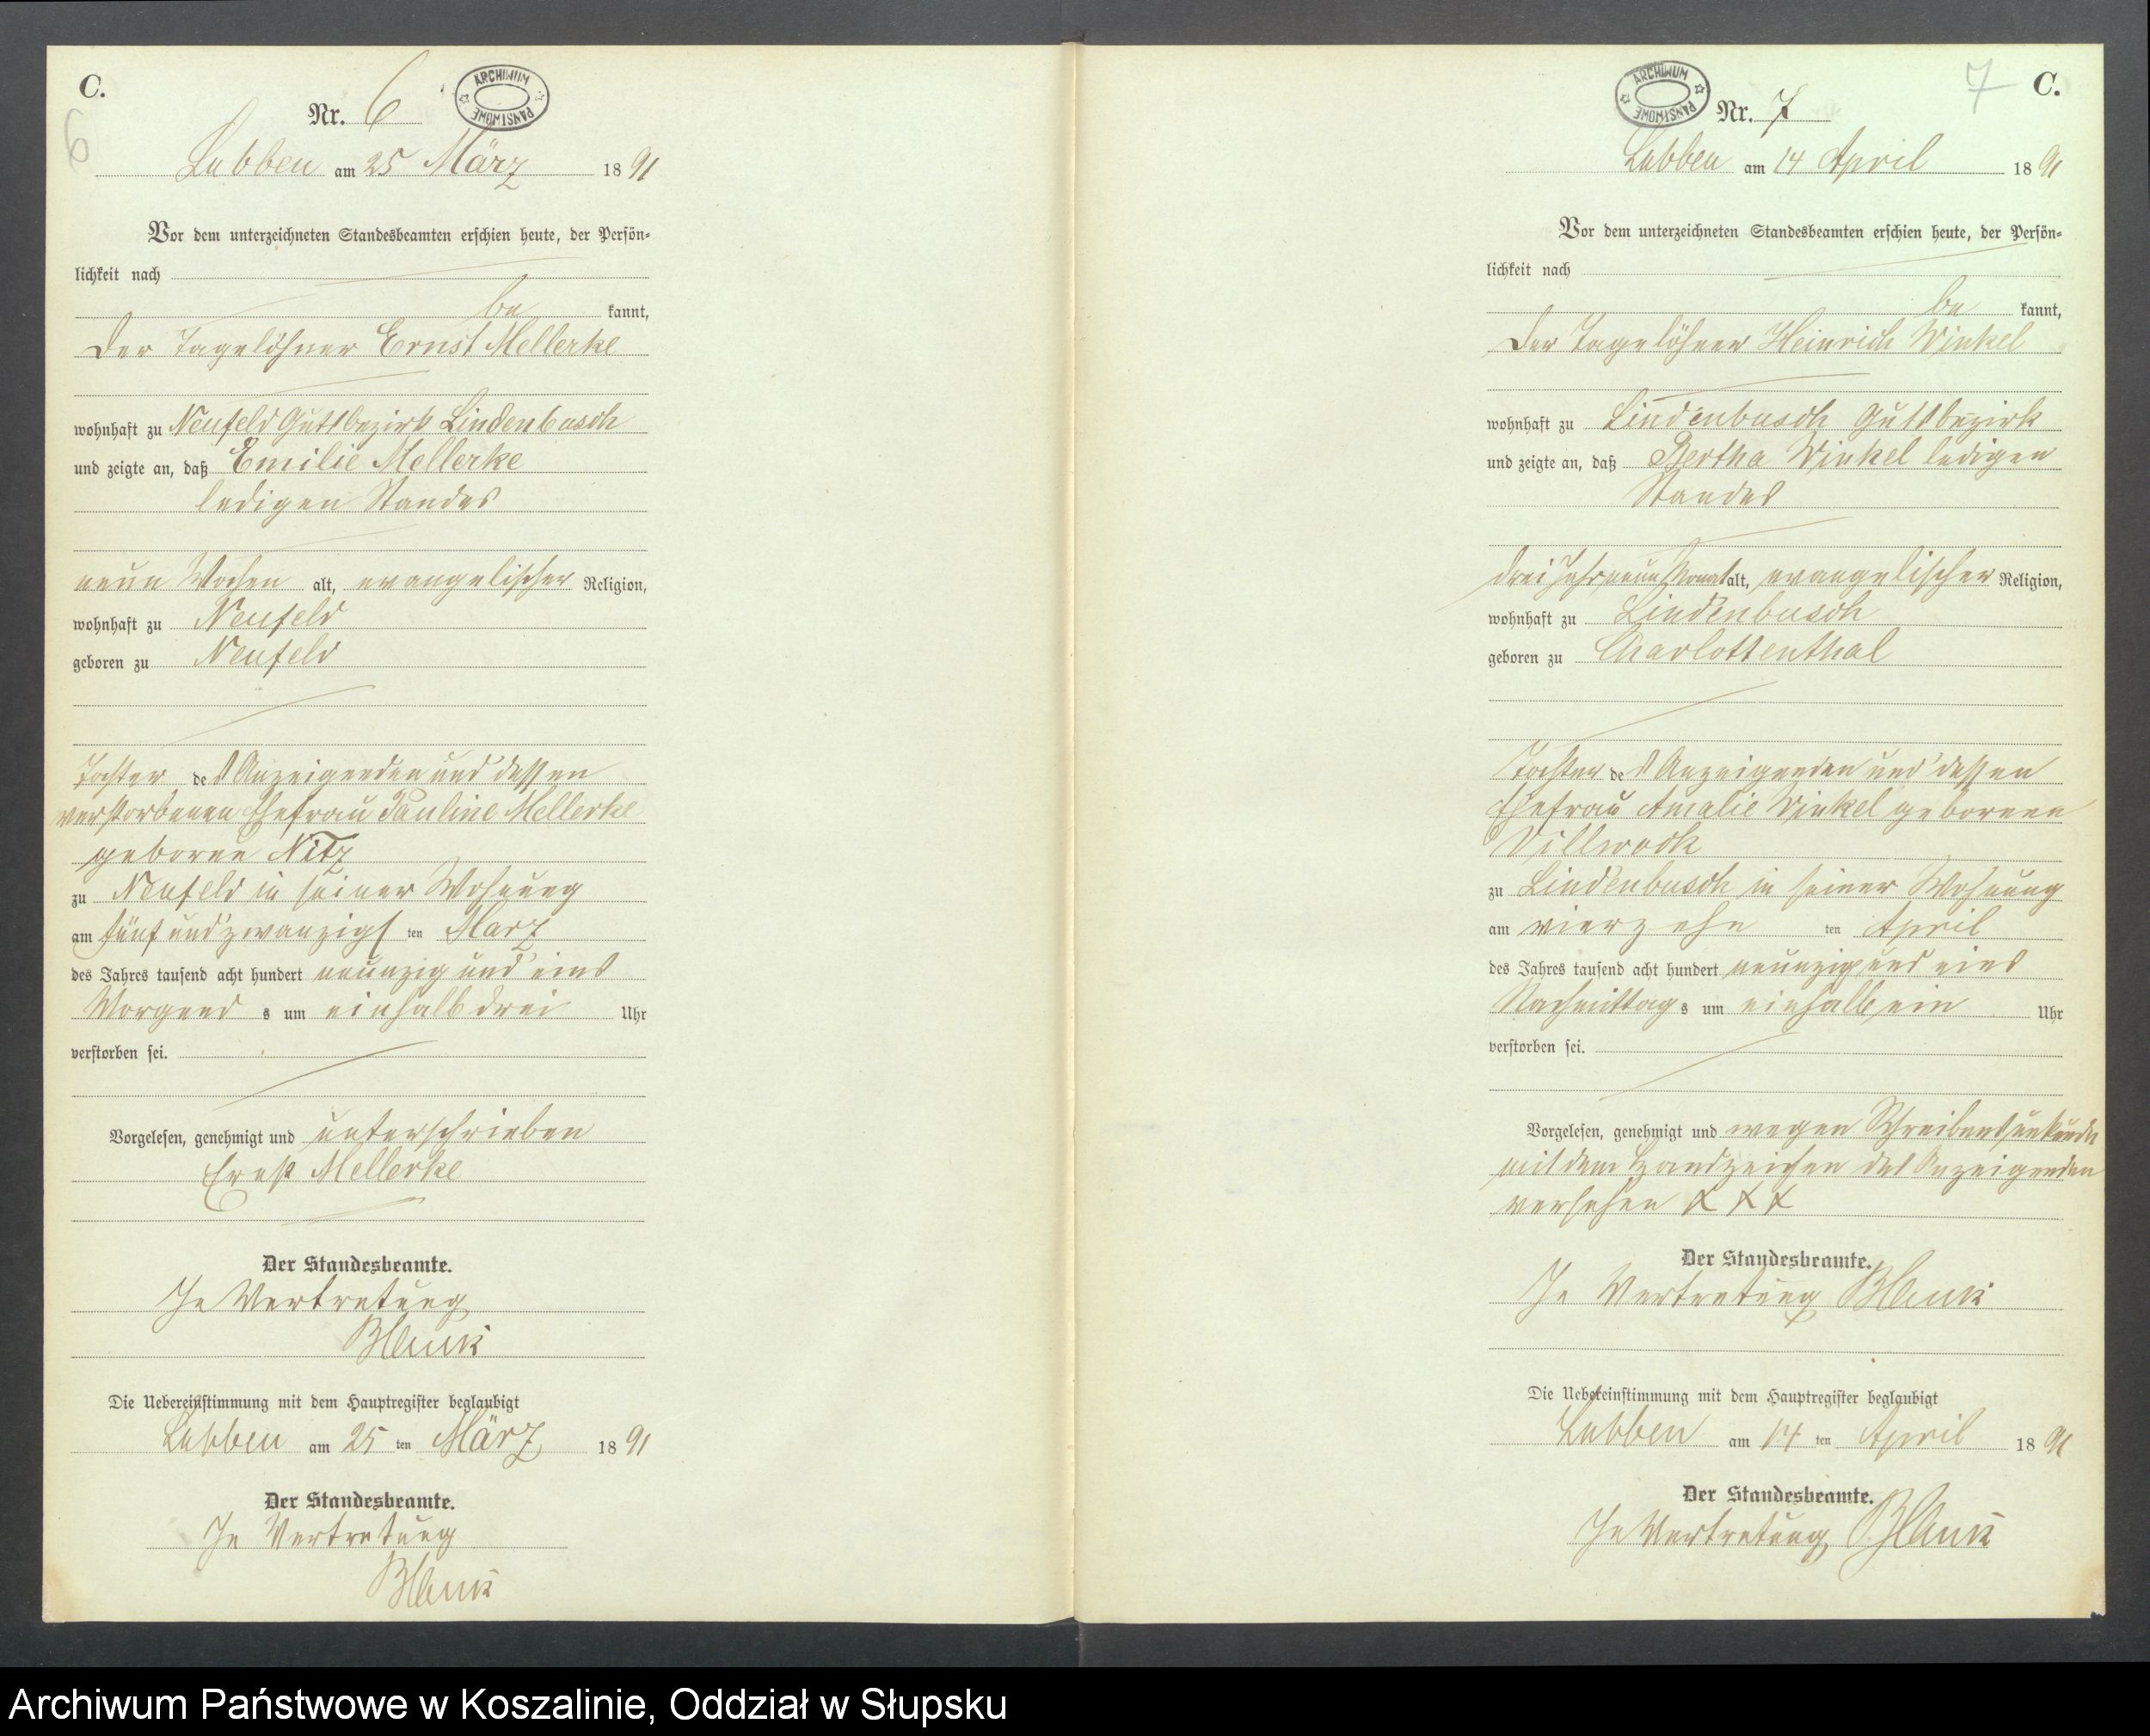 C.
6
Nr. 6
ARCHIWUM PAŃSTWOWE
Lubben am 25 März 1891
Vor dem unterzeichneten Standesbeamten erschien heute, der Persön-
lichkeit nach
be kannt,
der Tagelöhner Ernst Mellerke
wohnhaft zu Neufeld Gutsbezirk Lindenbusch
und zeigte an, daß Emilie Mellerke
ledigen Standes
neun Wochen alt, evangelischer Religion,
wohnhaft zu Neufeld
geboren zu Neufeld
Tochter des Anzeigenden und dessen
verstorbenen Ehefrau Pauline Mellerke
geborne Nitz
zu Neufeld in seiner Wohnung
am fünf und zwanzigsten März
des Jahres tausend acht hundert neunzig und eins
Morgend s um einhalb drei Uhr
verstorben sei.
Vorgelesen, genehmigt und unterschrieben
Ernst Mellerke
Der Standesbeamte.
In Vertretung
Die Uebereinstimmung mit dem Hauptregister beglaubigt
Lubben am 25 ten März 1891
Der Standesbeamte.
In Vertretung
7 C.
ARCHIWUM PAŃSTWOWE
Nr. 7
Lubben am 14 April 1891
Vor dem unterzeichneten Standesbeamten erschien heute, der Persön-
lichkeit nach
be kannt,
der Tagelöhner Heinrich Winkel
wohnhaft zu Lindenbusch Gutsbezirk
und zeigte an, daß Bertha Winkel ledigen
Standes
drei Jahr neun Monat alt, evangelischer Religion,
wohnhaft zu Lindenbusch
geboren zu Charlottenthal
Tochter des Anzeigenden und dessen
Ehefrau Amalie Winkel geborene
Villwock
zu Lindenbusch in seiner Wohnung
am vierzehn ten April
des Jahres tausend acht hundert neunzig und eins
Nachmittag s um einhalb ein Uhr
verstorben sei.
Vorgelesen, genehmigt und wegen Schreibensunkunde
mit dem Handzeichen des Anzeigenden
versehen X X X
Der Standesbeamte.
In Vertretung
Die Uebereinstimmung mit dem Hauptregister beglaubigt
Lubben am 14 ten April 1891
Der Standesbeamte.
In Vertretung
Archiwum Państwowe w Koszalinie, Oddział w Słupsku